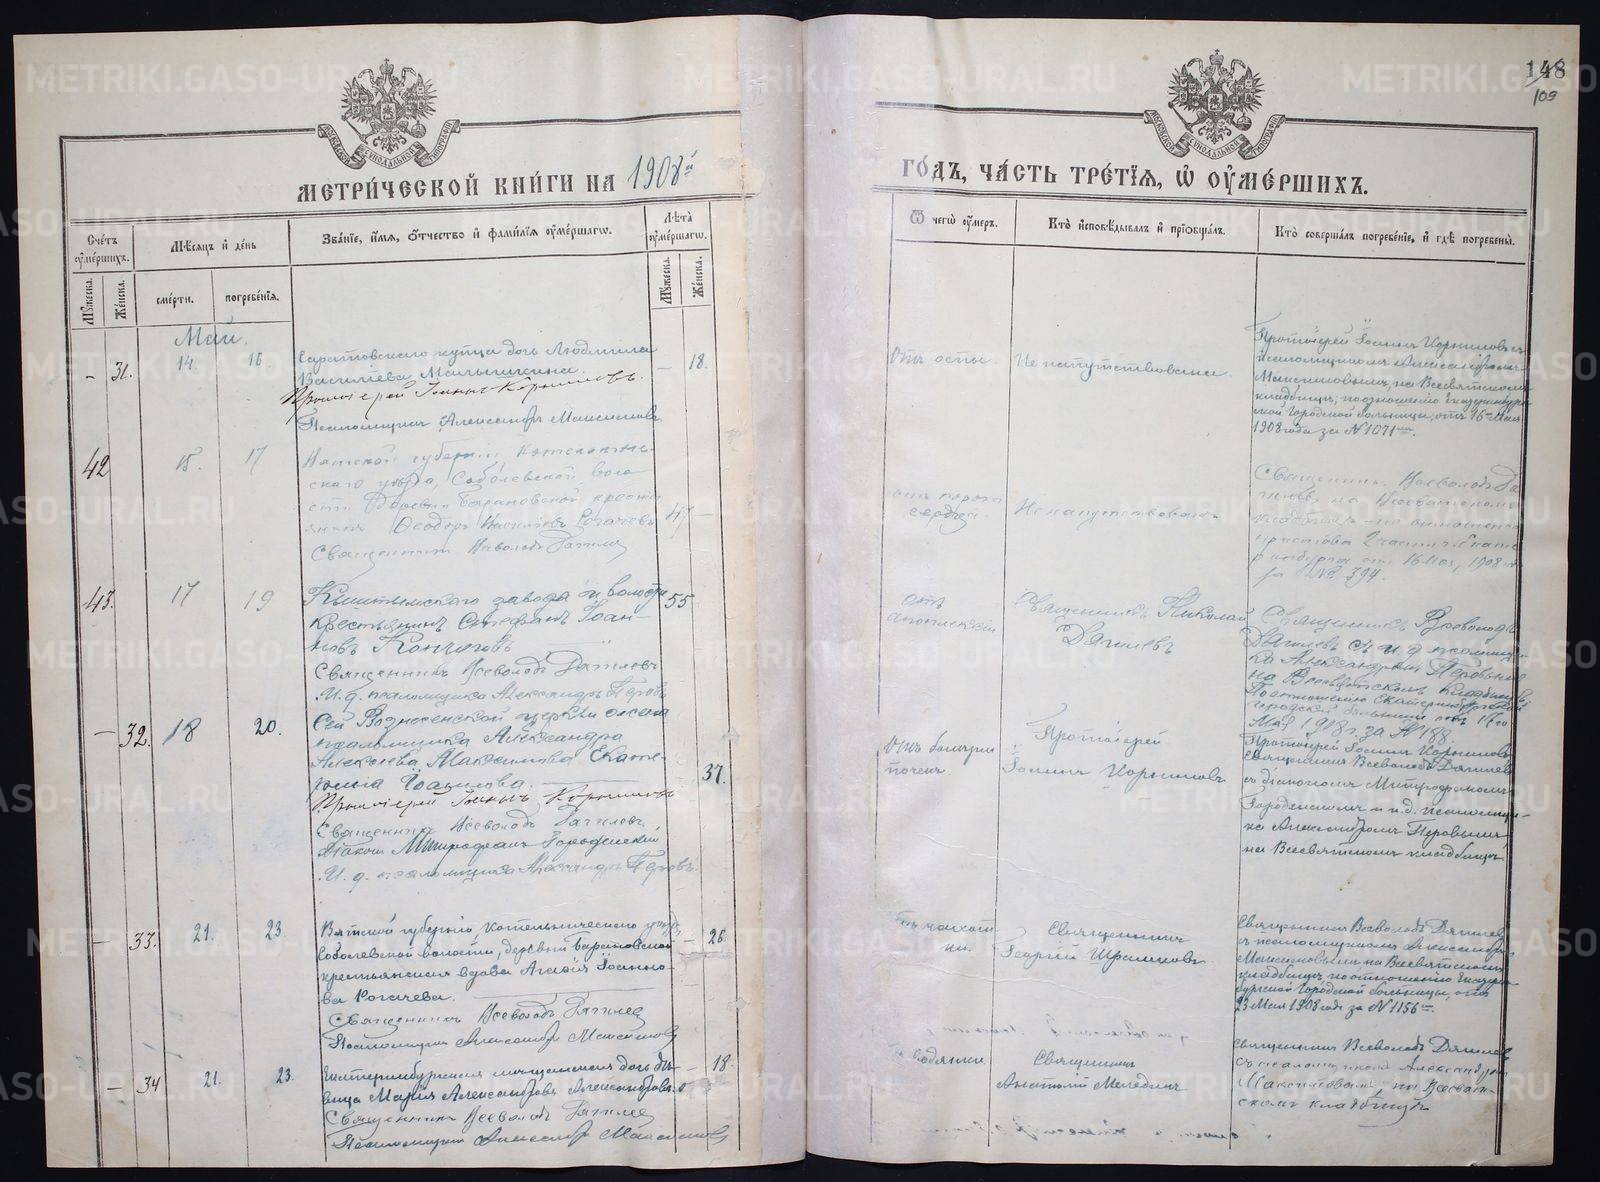 148
109
МЕТРИ́ЧЕСКОЙ КНИ́ГИ НА 1908й
ГО́ДЪ, ЧА́СТЬ ТРЕ́ТЇѦ, Ѡ҆ ОУ҆МЕ́РШИХЪ.
Сче́тъ оу҆ме́ршихъ.
Мѣ́сѧцъ и҆ де́нь
Зва́нїе, и҆́мѧ, ѻ҆́тчество и҆ фами́лїѧ оу҆ме́ршагѡ.
Лѣ́та оу҆ме́ршагѡ.
Ѿ чегѡ̀ оу҆́меръ.
Кто̀ и҆сповѣ́дывалъ и҆ прїѡбща́лъ.
Кто̀ соверша́лъ погребе́нїе, и҆ гдѣ̀ погребены̀.
Мꙋ́жеска.
Же́нска.
сме́рти.
погребе́нїѧ.
Мꙋ́жеска.
Же́нска.
Май.
- 31. 14 16
Саратовскаго купца дочь Людмила
Васильева Малышкина.
Протоіерей Іоаннъ Корниловъ.
Псаломщикъ Александръ Максимовъ
— 18.
Отъ оспы
Не напутствована.
Протоіерей Іоаннъ Корниловъ съ
псаломщикомъ Александромъ
Максимовымъ, на Всесвятскомъ
кладбищѣ, по отношенію Екатеринбург-
ской Городской больницы, отъ 16 Мая
1908 года за № 1071
42 15. 17
Вятской губерніи Котельнич-
скаго уѣзда, Соболевской воло-
сти Деревни Барановской крестья-
нинъ Ѳеодоръ Рогачевъ
Священникъ Всеволодъ Дягилев
47 —
отъ порока
сердца.
Не напутствованъ
Священникъ Всеволодъ Дя-
гилевъ на Всесвятскомъ
кладбищѣ по отношенію
пристава 2 части г. Екате-
ринбурга отъ 16 мая, 1908 г.
за № 394.
43. 17 19
Кыштымскаго завода и волости
крестьянинъ Стефанъ Іоан-
новъ
Священникъ Всеволодъ Дягилевъ
И. д. псаломщика Александръ Перовъ
55
отъ
апоплексіи
Священникъ Николай
Дягилевъ
Священникъ Всеволодъ
Дягилевъ съ и. д. псаломщи-
ка Александромъ Перовымъ
на Всесвятскомъ кладбищѣ
По отношенію Екатеринбургской
городской больницы отъ 17го
Мая 1908 г. за № 188.
— 32. 18 20.
Сей Вознесенской церкви жена
псаломщика Александра
Алексѣева Максимова Екате-
рина Іоаннова.
Протоіерей Іоаннъ Корниловъ
Священникъ Всеволодъ Дягилевъ
Діаконъ Митрофанъ Городенскій
И. д. псаломщика Александръ Перовъ.
37.
Отъ болѣзни
почекъ.
Протоіерей
Іоаннъ Корниловъ
Протоіерей Іоаннъ Корниловъ
священникъ Всеволодъ Дягилевъ
съ діакономъ Митрофаномъ
Городенскимъ и и.д. псаломщи-
ка Александромъ Перовымъ
на Всесвятскомъ кладбищѣ.
— 33. 21. 23.
Вятской губерніи, Котельническаго уѣзда,
Соболевской волости, деревни Барановской
крестьянская вдова Агаѳія Іоанно-
ва Рогачева.
Священникъ Всеволодъ Дягилев
Псаломщикъ Александръ Максимовъ
— 26.
Отъ чахот-
ки.
Священникъ
Георгій
Священникъ Всеволодъ Дягилев
съ псаломщикомъ Александром
Максимовымъ на Всесвятскомъ
кладбищѣ, по отношенію Екатерин-
бургской Городской больницы, отъ
23 Мая 1908 года за № 1156
— 34 21. 23.
Екатеринбургская мѣщанская дочь дѣ-
вица Марія Александрова Александрова
Священникъ Всеволодъ Дягилев
Псаломщикъ Александръ Максимовъ
— 18.
водянки
Священникъ
Анатолій
Священникъ Всеволодъ Дягилев
съ псаломщикомъ Александром
Максимовымъ, на Всесвят-
скомъ кладбищѣ
METRIKI.GASO-URAL.RU